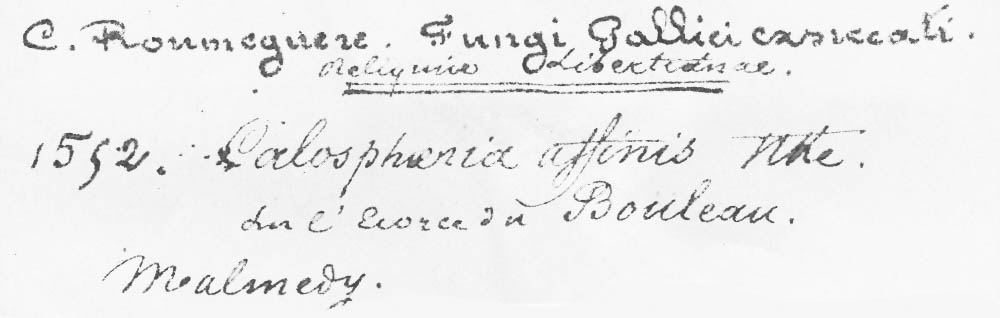 C. Roumeguere. Fungi Gallici exsiccati.
Reliquiæ Libertianae.
1552. Calosphæria affinis Nke.
Sur l'écorce du Bouleau.
Malmedy.